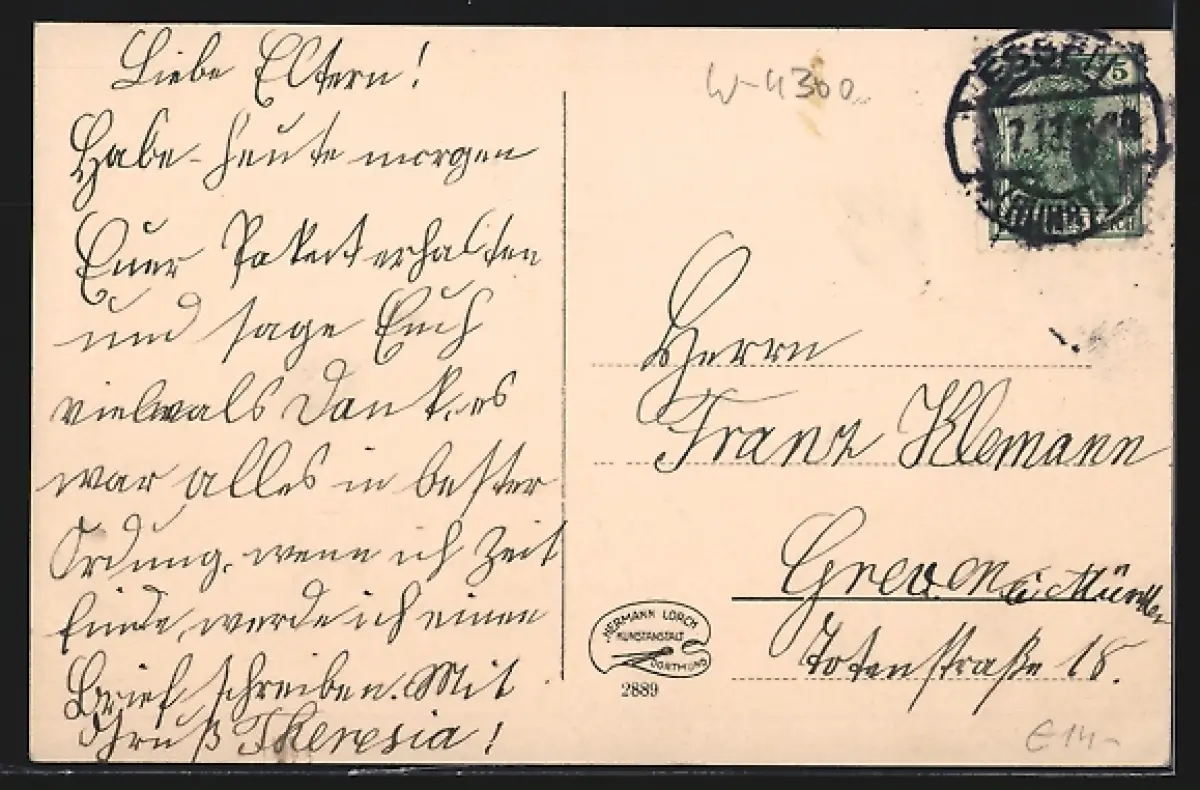 Liebe Eltern!
Habe heute morgen
Euer Paket erhalten
und sage Euch
vielmals Dank, es
war alles in bester
Ordung, wenn ich Zeit
finde, werde ich einen
Brief schreiben. Mit
Gruß Theresia!
W-4300
ESSEN
5
(RUHR)
Herrn
Franz Klemann
Greven i Münster
Totenstraße 18.
HERMANN LORCH
KUNSTANSTALT
DORTMUND
2889
€14-